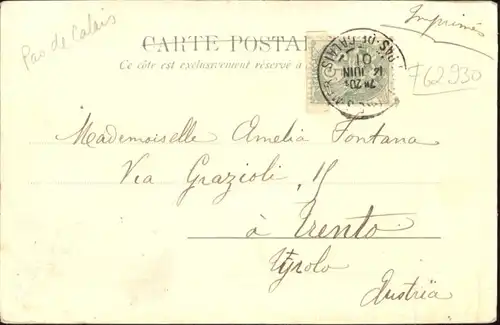 Pas de Calais
Imprimés
CARTE POSTAL
Ce côté est exclusivement réservé à
PAS-DE-CALAIS
7ᴱ 20
14
JUIN
01
762930
Mademoiselle Amelia Fontana
Via Grazioli, 15
à Trento
Tyrolo
Austria